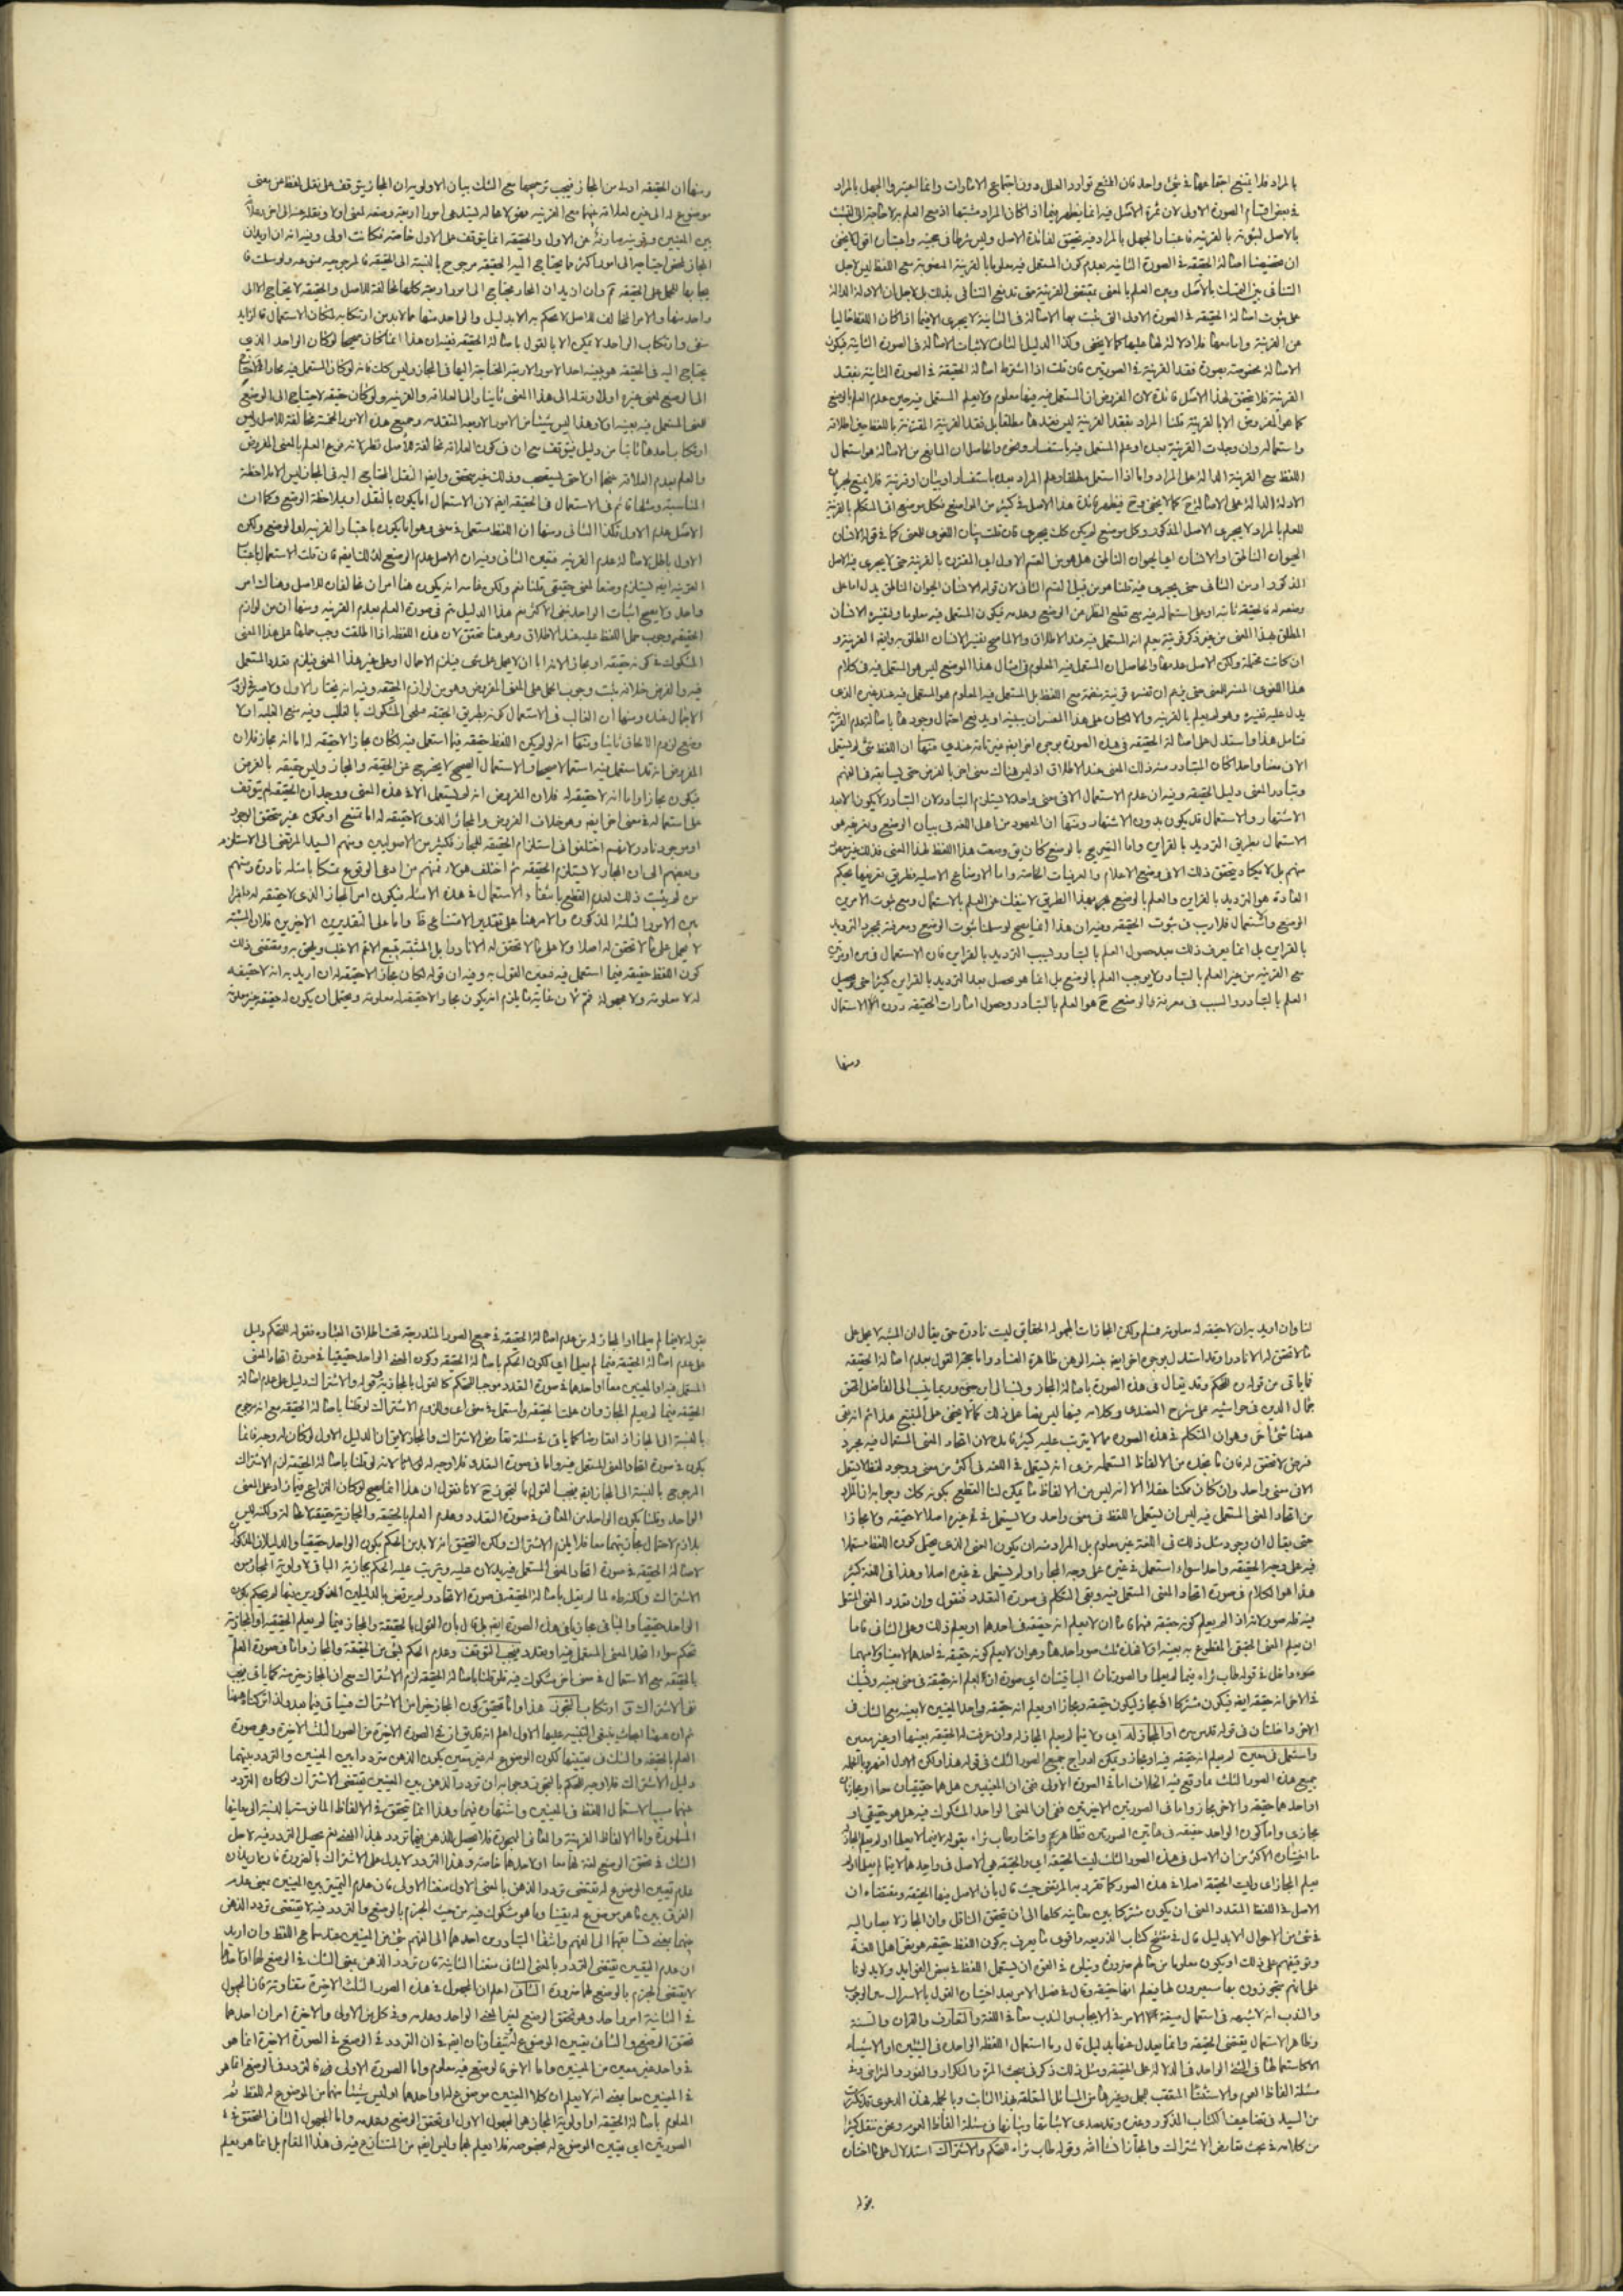 بالمراد فلا يمتنع اجتماعهما في شيء واحد فان الممتنع توارد العلل دون اجتماع الامارات وانما اعتبروا الجهل بالمراد
في بعض اقسام الصورة الاولى لان ثمرة الاصل فيه انما يظهر
بالاصل لثبوته بالقرينة فاعتبار الجهل بالمراد فيه لتحقق فائدة الاصل وليس شرطا في حجيته
ان مقتضى اصالة الحقيقة في الصورة الثانية بعدم كون المستعمل فيه معلوما بالقرينة
التنافي بين التمسك بالاصل وبين العلم بالمعنى بمقتضى القرينة حتى يندفع التنافي بذلك بل لاجل ان الادلة الدالة
على ثبوت اصالة الحقيقة في الصورة الاولى التي ثبت بها الاصالة في الثانية لا يجرى الا فيما اذا كان اللفظ خاليا
عن القرينة واما معها فلا دلالة لها عليها كما لا يخفى وكذا الدليل الثالث لاثبات الاصالة في الصورة الثانية فيكون
الاصالة مخصوصة بصورة فقد القرينة في الصورتين فان قلت اذا اشترط اصالة الحقيقة في الصورة الثانية بفقد
القرينة فلا يتحقق لهذا الاصل فائدة لان المفروض ان المستعمل فيه فيها معلوم ولا يعلم المستعمل فيه حين عدم العلم بالوضع
كما هو المفروض الا بالقرينة قلنا المراد بفقد القرينة ليس فقدها مطلقا بل فقد القرينة المقترنة باللفظ حين اطلاقه
واستعماله وان وجدت القرينة بعده او علم المستعمل فيه باستفسار ونحوه والحاصل ان المانع من الاصالة هو استعمال
اللفظ مع القرينة الدالة على المراد واما اذا استعمل مطلقا وعلم المراد بعده باستفسار او بيان او قرينة فلا يمنع
الادلة الدالة على الاصالة كما لا يخفى وح فيظهر فائدة هذا الاصل في كثير من المواضع فكل موضع اتى المتكلم بالقرينة
للعلم بالمراد لا يجرى الاصل المذكور وكل موضع لم يكن كذلك يجرى فان قلت بيان اللغوى للمعنى كما في قوله الانسان
الحيوان الناطق او الانسان اى الحيوان الناطق هل هو من القسم الاول اى المقترن بالقرينة حتى لا يجرى فيه الاصل
المذكور او من الثاني حتى يجرى فيه قلنا هو من قبيل القسم الثاني لان قوله الانسان الحيوان الناطق يدل اما على
وضعه له فالحقيقة ثابتة او على استعماله فيه مع قطع النظر عن الوضع وعدمه فيكون المستعمل فيه معلوما
ان كانت محتملة ولكن الاصل عدمها والحاصل ان المستعمل فيه المعلوم في امثال هذا الموضع ليس هو المستعمل فيه في كلام
هذا اللغوى المفسر للمعنى حتى يتم ان تفسيره قرينة منضمة مع اللفظ بل المستعمل فيه المعلوم هو المستعمل فيه عند غيره الذى
الا في معنا واحد كان المتبادر منه ذلك المعنى عند الاطلاق اذ ليس هناك معنى اخر بالفرض حتى يسابقه في الفهم
وتبادر المعنى دليل الحقيقة وفيه ان عدم الاستعمال الا في معنى واحد لا يستلزم التبادر لان التبادر لا يكون الا بعد
الاشتهار والاستعمال قد يكون بدون الاشتهار ومنها ان المعهود من اهل اللغة في بيان الوضع وتعريفه هو
الاستعمال بطريق الترديد بالقراين واما التصريح بالوضع كان يق وضعت هذا اللفظ لهذا المعنى فذلك غير معهود
منهم بل لا يكاد يتحقق ذلك الا في وضع الاعلام والعرفيات الخاصة واما الاوضاع الاصلية فطريق تعريفها بحكم
العادة هو الترديد بالقراين والعلم بالوضع بهذا الطريق لا ينفك عن العلم بالاستعمال ومع ثبوت الامرين
الوضع والاستعمال فلا ريب في ثبوت الحقيقة وفيه ان هذا انما يصح لو سلمنا ثبوت الوضع ومعرفته بمجرد الترديد
بالقراين بل انما يعرف ذلك بعد حصول العلم بالتبادر بسبب الترديد بالقراين فان الاستعمال
مع القرينة من غير العلم بالتبادر لا يوجب العلم بالوضع بل انما هو يحصل بعد الترديد بالقراين كثيرا حتى يحصل
العلم بالتبادر والسبب في معرفة الوضع ح هو العلم بالتبادر وحصول امارات الحقيقة دون الاستعمال
ومنها
ومنها ان الحقيقة اولى من المجاز فيجب ترجيحها مع الشك بيان الاولوية ان المجاز يتوقف على نقل لفظ عن معنى
بين المعنيين وقرينة صارفة عن الاول والحقيقة انما يتوقف على الاول خاصة فكانت اولى وفيه انه ان اريد ان
المجاز لمحض احتياجه الى امور اكثر مما يحتاج اليه الحقيقة مرجوح بالنسبة الى الحقيقة فالمرجوحية ممنوعة ولو سلمت فا
يجابها للحمل على الحقيقة ثم وان اريد ان المجاز يحتاج الى امور اربعة كلها مخالفة للاصل والحقيقة لا يحتاج الا الى
واحد منها والامر المخالف للاصل لا يحكم به الا بدليل والواحد منها مما لابد من ارتكابه لمكان الاستعمال فالزايد
منفى وارتكاب الواحد لا يمكن الا بالقول باصالة الحقيقة ففيه ان هذا انما كان صحيحا لو كان الواحد الذى
يحتاج اليه في الحقيقة هو بعينه احد الامور الاربعة المحتاجة اليها في المجاز وليس كذلك فانه لو كان المستعمل فيه مجازا
الى الوضع لمعنى غيره اولا ونقله الى هذا المعنى ثانيا والى العلاقة والقرينة ولو كان حقيقة لاحتاج الى الوضع
للمعنى المستعمل فيه بعينه وهذا ليس شيئا من الامور الاربعة المتقدمة وجميع هذه الامور الخمسة مخالفة للاصل وليس
والعلم بعدم العلاقة بينهما اولا حتى يستصحب وذلك غير متحقق وايضا النقل المحتاج اليه في المجاز ليس الا ملاحظة
المناسبة ومثلها قائم في الاستعمال في الحقيقة ايضا لان الاستعمال اما يكون بالنقل او بملاحظة الوضع وكما ان
الاصل عدم الاول فكذا الثاني ومنها ان اللفظ مستعمل في معنى وهو اما يكون باعتبار القرينة او الوضع ولكن
الاول باطل لاصالة عدم القرينة فتعين الثاني وفيه ان الاصل عدم الوضع لذلك ايضا فان قلت الاستعمال باعتبار
القرينة ايضا يستلزم وضعا لمعنى حقيقي قلنا نعم ولكن غايته انه يكون هنا امران مخالفان للاصل وهناك امر
واحد ولا يصح اثبات الواحد بنفى الاكثر نعم هذا الدليل يتم في صورة العلم بعدم القرينة ومنها ان من لوازم
الحقيقة وجوب حمل اللفظ عليه عند الاطلاق وهو هنا متحقق لان هذه اللفظة اذا اطلقت وجب حملها على هذا المعنى
المشكوك في كونه حقيقة او مجازا لانه اما ان لا يحمل على شيء فيلزم الاهمال او على غير هذا المعنى فيلزم تعدد المستعمل
فيه والفرض خلافه فثبت وجوب الحمل على المعنى المفروض وهو من لوازم الحقيقة وفيه انه نختار الاول
الاهمال عنده ومنها ان الغالب في الاستعمال كونه بطريق الحقيقة فيلحق المشكوك بالغالب وفيه منع الغلبة اولا
ومنع لزوم الالحاق ثانيا ومنها انه لو لم يكن اللفظ حقيقة فيما استعمل فيه لكان مجازا لا حقيقة له اما انه مجاز فلان
المفروض انه قد استعمل فيه استعمالا صحيحا والاستعمال الصحيح لا يخرج عن الحقيقة والمجاز وليس حقيقة بالفرض
فيكون مجازا واما انه لا حقيقة له فلان المفروض انه لم يستعمل الا في هذا المعنى ووجدان الحقيقة له يتوقف
على استعماله في معنى اخر ايضا وهو خلاف الفرض والمجاز الذى لا حقيقة له اما ممتنع او ممكن غير متحقق الوجود
او موجود نادر لانهم اختلفوا في استلزام الحقيقة للمجاز فكثير من الاصوليين ومنهم السيد المرتضى الى الاستلزام
وبعضهم الى ان المجاز لا يستلزم الحقيقة ثم اختلف هؤلاء فمنهم من ادعى الوقوع متمسكا بامثلة نادرة ومنهم
من لم يثبت ذلك لعدم القطع بانتفاء الاستعمال في هذه الامثلة فيكون امر المجاز الذى لا حقيقة له دائرا
بين الامور الثلثة المذكورة والامر هنا على تقدير الامتناع ظ واما على التقديرين الاخيرين فلان المشتبه
لا يحمل على ما لا تحقق له اصلا ولا على ما لا تحقق له الا نادرا بل المشتبه يتبع الاعم الاغلب ويلحق به ومقتضى ذلك
كون اللفظ حقيقة فيما استعمل فيه فتعين القول به وفيه ان قوله لكان مجازا لا حقيقة له ان اريد به انه لا حقيقة
له لا معلومة ولا مجهولة فثم لان غاية ما يلزم انه يكون مجازا لا حقيقة له معلومة ويحتمل ان يكون له حقيقة غير معلومة
لنا وان اريد به ان لا حقيقة له معلومة فمسلم ولكن المجازات المجهولة الحقايق ليست نادرة حتى يقال ان المشتبه لا يحمل على
ما لا تحقق له الا نادرا وقد استدل بوجوه اخر ايضا بينة الوهن ظاهرة الفساد واما حجة القول بعدم اصالة الحقيقة
فاياتى من قوله ره للحكم وقد يقال في هذه الصورة باصالة المجاز ونسب الى ابن جنى وربما ينسب الى الفاضل المحقق
جمال الدين في حواشيه على شرح العضدى وكلامه فيها ليس نصا على ذلك كما لا يخفى على المتتبع هذا ثم انه بقى
ههنا شيء اخر وهو ان المتكلم في هذه الصورة مما لا يترتب عليه كثير فائدة لان اتحاد المعنى المستعمل فيه مجرد
فرض لا تحقق له فان ما نجده من الالفاظ المستعملة نرى انه يستعمل في اللغة في اكثر من معنى ووجود لفظ لا يستعمل
الا في معنى واحد وان كان ممكنا عقلا الا انه ليس من الالفاظ ما يمكن لنا القطع بكونه كذلك وجوابه ان المراد
من اتحاد المعنى المستعمل فيه ليس ان يستعمل اللفظ في معنى واحد ولا يستعمل في غيره اصلا لا حقيقة ولا مجازا
حتى يقال ان وجود مثل ذلك في اللغة غير معلوم بل المراد منه ان يكون المعنى الذى يحتمل كون اللفظ مستعملا
فيه على وجه الحقيقة واحدا سواء استعمل في غيره على وجه المجاز او لم يستعمل في غيره اصلا وهذا في اللغة كثير
هذا هو الكلام في صورة اتحاد المعنى المستعمل فيه وبقى المتكلم في صورة التعدد فنقول وان تعدد المعنى المستعمل
فيه فله صور لانه اذا لم يعلم كونه حقيقة فيهما فاما ان لا يعلم انه حقيقة في احدهما او يعلم ذلك وعلى الثاني فاما
ان يعلم المعنى الحقيقي المقطوع به بعينه او لا فهذه ثلث صور احدها وهو ان لا يعلم كونه حقيقة في احدهما معينا ولا مبهما
فهو داخل في قوله طاب ثراه فيما لم يعلما والصورتان الباقيتان اى صورة اذا علم انه حقيقة في معنى بعينه وشك
في الاخر انه حقيقة ايضا فيكون مشتركا او مجاز ليكون حقيقة ومجازا او يعلم انه حقيقة في احد المعنيين لا بعينه مع الشك في
الاخر داخلتان في قوله قدس سره او المجاز له اى ولا فيما لم يعلم المجاز له وان عرفت له الحقيقة بعينها او بغير تعيين
جميع هذه الصور الثلث مما وقع فيه الخلاف اما في الصورة الاولى ففى ان المعنيين هل هما حقيقيان معا او مجازيان
او احدهما حقيقة والاخر مجاز واما في الصورتين الاخيرتين ففى ان المعنى الواحد المشكوك فيه هل هو حقيقي او
مجازى واما كون الواحد حقيقة في هاتين الصورتين فظاهر ثم واختار طاب ثراه بقوله لا فيما لم يعلما او لم يعلم المجاز
ما اختاره الاكثر من ان الاصل في هذه الصور الثلث ليست الحقيقة
يعلم المجاز اى وليست الحقيقة اصلا في هذه الصور كما تفرد به المرتضى حيث قال بان الاصل فيها الحقيقة ومقتضاه ان
الاصل في اللفظ المتعدد المعنى ان يكون مشتركا بين معانيه كلها الى ان يتحقق الناقل وان المجاز لا يصار اليه
في شيء من الاحوال الا بدليل قال في مفتتح كتاب الذريعة واقوى ما يعرف به كون اللفظ حقيقة هو نص اهل اللغة
وتوقيفهم على ذلك او يكون معلوما من حالهم ضرورة ويتلوه في القوة ان يستعمل اللفظ في بعض الفوايد ولا يدلونا
على انهم متجوزون بها مستعيرون لها فيعلم انها حقيقة وقال في فصل الامر بعد اختياره القول بالاشتراك بين الوجوب
والندب انه لا شبهة في استعمال صيغة الامر في الايجاب والندب معا في اللغة والتعارف والقران والسنة
وظاهر الاستعمال يقتضى الحقيقة وانما يعدل عنها بدليل قال وما استعمال اللفظة الواحدة في الشيئين او الاشياء
الا كاستعمالها في الشيء الواحد في الدلالة على الحقيقة ومثل ذلك ذكر في مبحث المرة والتكرار والفور والتراخى وفى
مسئلة الفاظ العموم والاستثناء المتعقب لجمل وغيرها من المسائل المتعلقة بهذا الباب وبالجملة هذه الدعوى قد تكررت
من السيد في تضاعيف الكتاب المذكور وغيره
من كلامه في بحث تعارض الاشتراك والمجاز انشاء الله وقوله طاب ثراه للحكم والاشتراك استدلال على ما اختاره
بقوله
بقوله لا فيما لم يعلما او المجاز له من عدم اصالة الحقيقة في جميع الصور المندرجة تحت اطلاق العبارة فقوله للحكم دليل
على عدم اصالة الحقيقة فيما لم يعلما اى لكون الحكم باصالة الحقيقة وكون المعنى الواحد حقيقيا في صورة اتحاد المعنى
المستعمل فيه او المعنيين معا او احدهما في صورة التعدد موجبا للتحكم كالقول بالمجازية وقوله والاشتراك دليل على عدم اصالة
الحقيقة فيما لم يعلم المجاز وان علمت الحقيقة واستعمل في معنى اى وللزوم الاشتراك لو قلنا باصالة الحقيقة مع انه مرجوح
بالنسبة الى المجاز اذا تعارضا كما ياتى في مسئلة تعارض الاشتراك والمجاز لا يق ان الدليل الاول لو كان له وجه فانما
يكون في صورة اتحاد المعنى المستعمل فيه واما في صورة التعدد فلا وجه له
المرجوح بالنسبة الى المجاز ايضا فيجب القول بالتجوز ح لانا نقول ان هذا انما يصح لو كان النزاع
الواحد وقلنا بكون الواحد من المعانى في صورة التعدد وعدم العلم بالحقيقة والمجازية حقيقة لا محالة ولكنه ليس
بلازم لاحتمال مجازيتهما معا فلا يلزم الاشتراك ولكن التحقيق انه لابد من الحكم بكون الواحد حقيقيا والدليلان المذكوران
لاصالة الحقيقة في صورة اتحاد المعنى المستعمل فيه يدلان عليه ويترتب عليه الحكم بمجازية الباقى لاولوية المجاز من
الواحد حقيقيا والباقى مجازيا في هذه الصورة ايضا بل قال بان القول بالحقيقة والمجاز فيما لم يعلم الحقيقة او المجازية
تحكم سواء اتحد المعنى المستعمل فيه او تعدد فيجب التوقف وعدم الحكم بشيء من الحقيقة والمجاز واما في صورة العلم
بالحقيقة مع الاستعمال في معنى اخر مشكوك فيه فلو قلنا باصالة الحقيقة لزم الاشتراك مع ان المجاز خير منه كما ياتى فيجب
نفى الاشتراك وارتكاب التجوز هذا واما تحقيق كون المجاز خيرا من الاشتراك فسياتى فيما بعد
ثم ان ههنا ابحاث ينبغى التنبيه عليها الاول اعلم انه قد يق ان في الصورة الاخيرة من الصور الثلث الاخيرة وهى صورة
العلم بالحقيقة والشك في تعيينها لكون الموضوع له غير معين يكون الذهن مترددا بين المعنيين والتردد بينهما
دليل الاشتراك فلا وجه للحكم بالتجوز وجوابه ان تردد الذهن بين المعنيين يقتضى الاشتراك لو كان التردد
بينهما مسببا لاستعمال اللفظ في المعنيين واشتهاره فيهما وهذا انما يتحقق في الالفاظ المانوسة
المشهورة واما الالفاظ الغريبة والمعانى المهجورة فلا يحصل للذهن بينهما تردد بهذا المعنى نعم يحصل التردد فيه لاجل
الشك في تحقق الوضع لغة لهما معا او لاحدهما خاصة وهذا التردد لا يدل على الاشتراك بالضرورة فان اريد ان
عدم تعيين الموضوع له يقتضى تردد الذهن بالمعنى الاول منعنا الاولى فان عدم التمييز بين المعنيين بمعنى عدم
الفرق بين ما هو موضوع له يقينا وما هو مشكوك فيه من حيث الجزم بالوضع والتردد فيه لا يقتضى تردد الذهن
بينهما بمعنى تسابقهما الى الفهم وانتفاء التبادر من احدهما الى الفهم بشيء من المعنيين عند سماع اللفظ وان اريد
ان عدم التعيين يقتضى التردد بالمعنى الثاني منعنا الثانية فان تردد الذهن بمعنى الشك في الوضع لهما او لاحدهما
لا يقتضى الجزم بالوضع لهما ضرورة الثاني اعلم ان المجهول في هذه الصور الثلث الاخيرة متفاوتة فان المجهول
في الثانية امر واحد وهو تحقق الوضع لغير المعنى الواحد وعدمه وفى كل من الاولى والاخيرة امران احدهما
تحقق الوضع والثاني تعيين الموضوع له ويتفاوتان ايضا في ان التردد في الوضع في الصورة الاخيرة انما هو
في واحد غير معين من المعنيين واما الاخر فالوضع فيه معلوم واما الصورة الاولى فالتردد في الوضع انما هو
في المعنيين معا بمعنى انه لا يعلم ان كلا المعنيين موضوع لهما او احدهما او ليس شيئا منهما من الموضوع له للفظ ثم
المعلوم باصالة الحقيقة او اولوية المجاز هو المجهول الاول اى تحقق الوضع وعدمه واما المجهول الثاني المتحقق في
الصورتين اى تعيين الموضوع له بخصوصه فلا يعلم بهما وليس ايضا من المتنازع فيه في هذا المقام بل انما هو يعلم